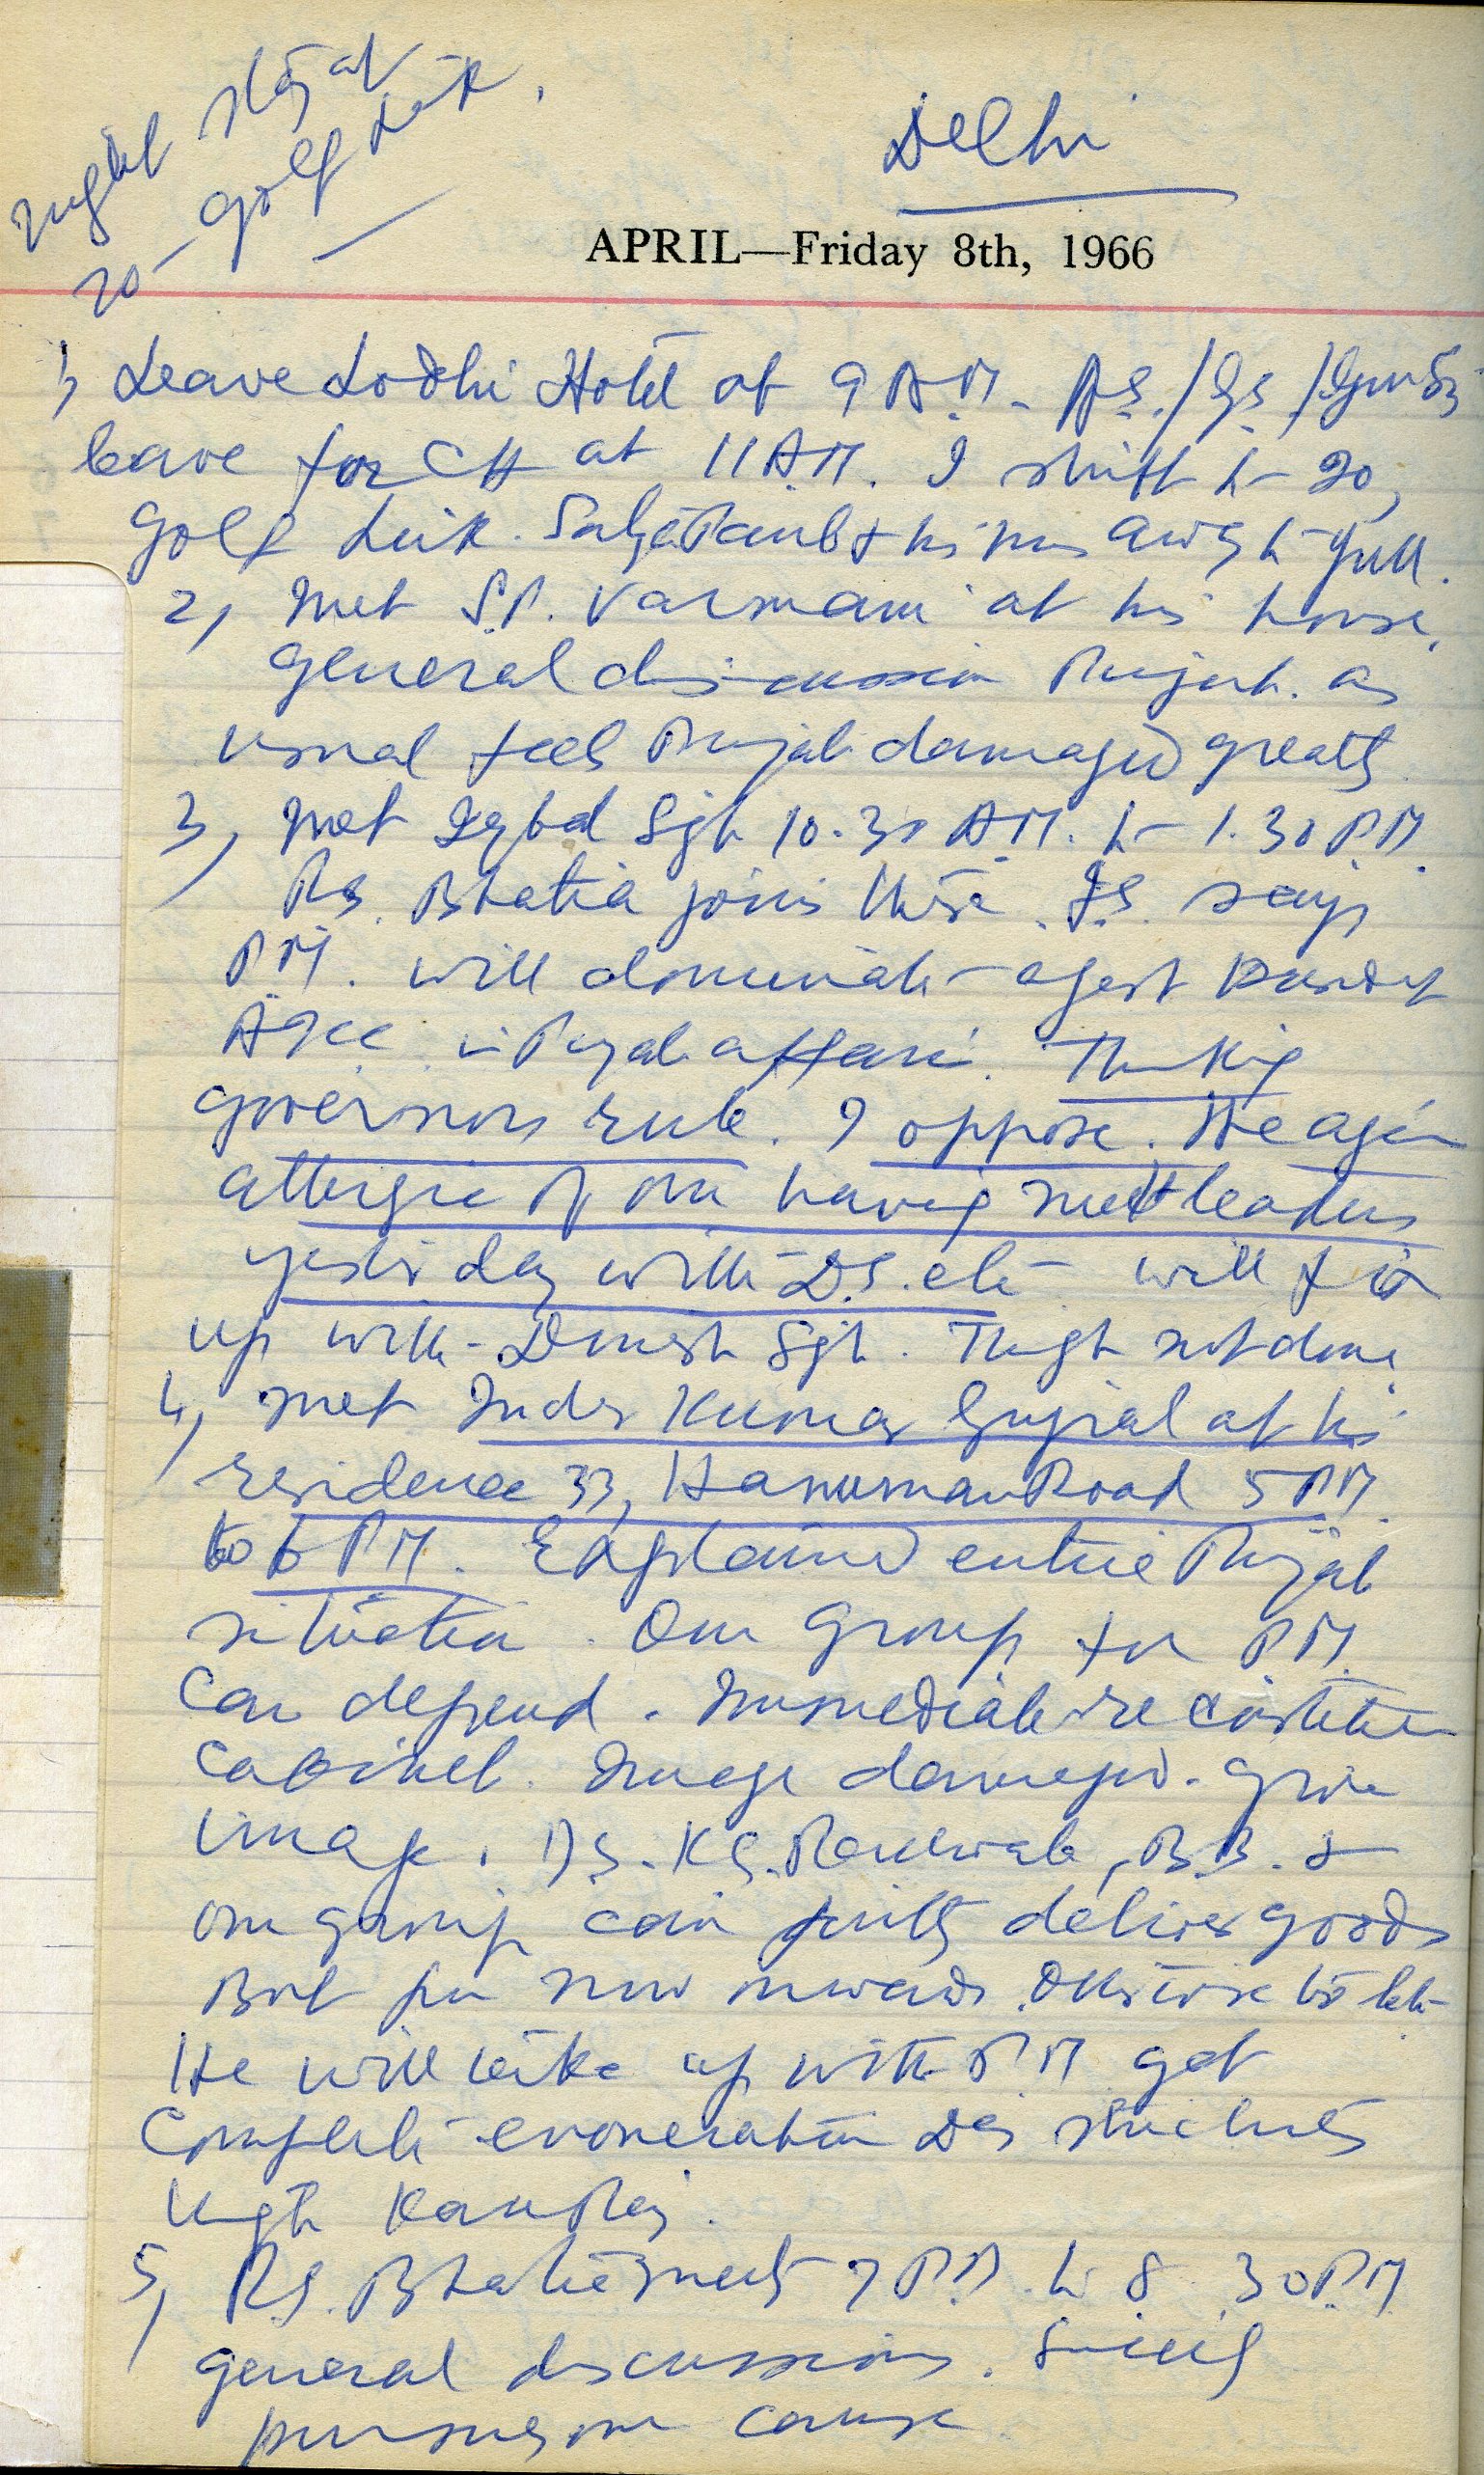 Night stay at
20 Golf Link.
Delhi
APRIL—Friday 8th, 1966
1, Leave Lodhi Hotel at 9 A.M. - A.S./G.S./
leave for CH at 11 A.M. I shift to 20,
Golf Link. &
2, Met S.P. Varmani at his house,
general discussion Punjab. as
usual feels Punjab damaged greatly
3, Met Iqbal Sgh 10.30 A.M. to 1.30 P.M.
R.S. Bhatia joins there. I.S. says
P.M. will dominate - agest
AICC in Punjab affairs. Thinking
governors rule. I oppose. He again
allergic of our having met leaders
yesterday with D.S. etc will fix
up with Dinesh Sgh. Though not done
4, Met Inder Kumar Gujral at his
residence 33, Hanuman Road 5 PM
to 6 P.M. Explained entire Punjab
situation. Our Group for P.M.
can depend. Immediate reconstitute
cabinet. Image damaged. Give
image. D.S. K.S. Rarewala, B.B. &
our group can jointly deliver goods
But from now onwards. Otherwise too late
He will take up with P.M. get
complete exoneration Das strictures
through Kamraj.
5, R.S. Bhatia meets 7 P.M. to 8.30 P.M
general discussions.
pursues our cause